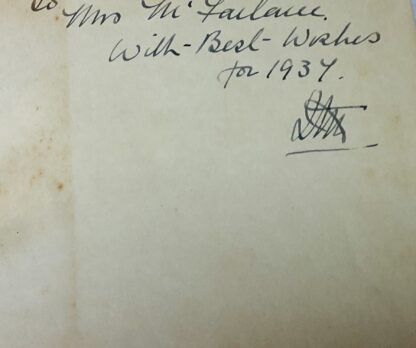 To
Mrs McFarlane.
With-Best-Wishes
for 1937.